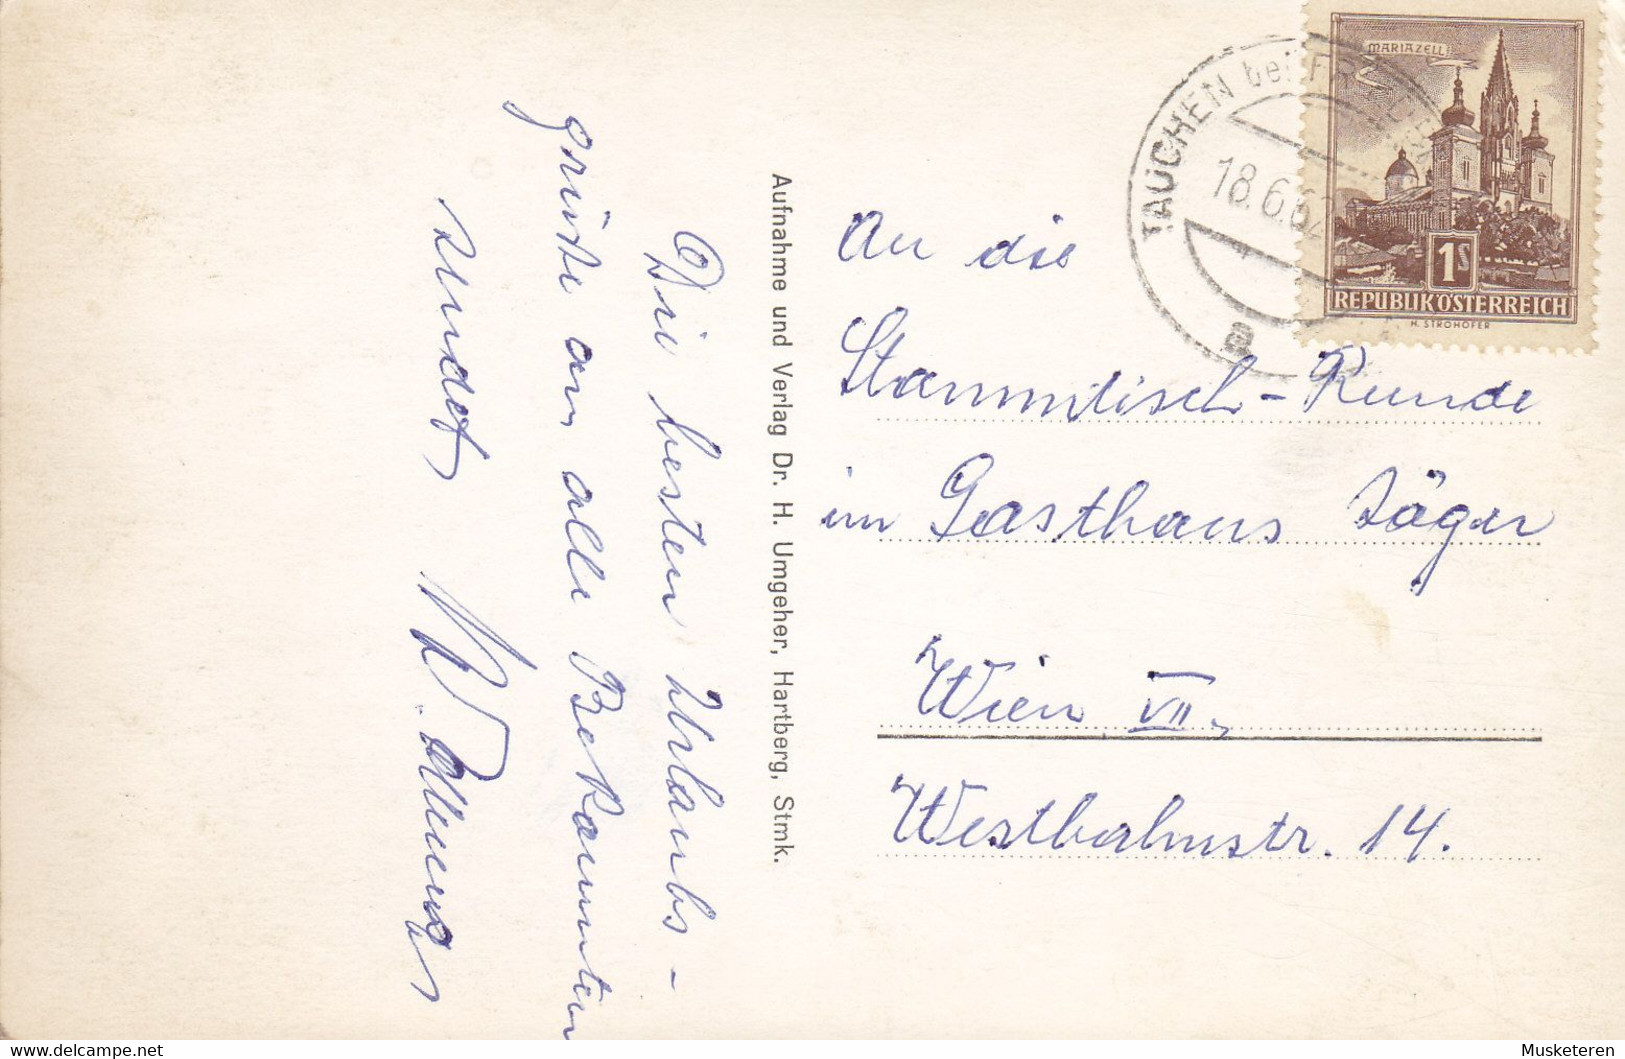 Die besten Urlaubs-
grüsse an alle Bekannten
sendet
Aufnahme und Verlag Dr. H. Umgeher, Hartberg, Stmk.
TAUCHEN bei
18.6.62
a
MARIAZELL
1S
REPUBLIK ÖSTERREICH
H. STROHOFER
An die
Stammtisch-Runde
im Gasthaus Jäger
Wien VII.
Westbahnstr. 14.
Musketeren
delcampe.net